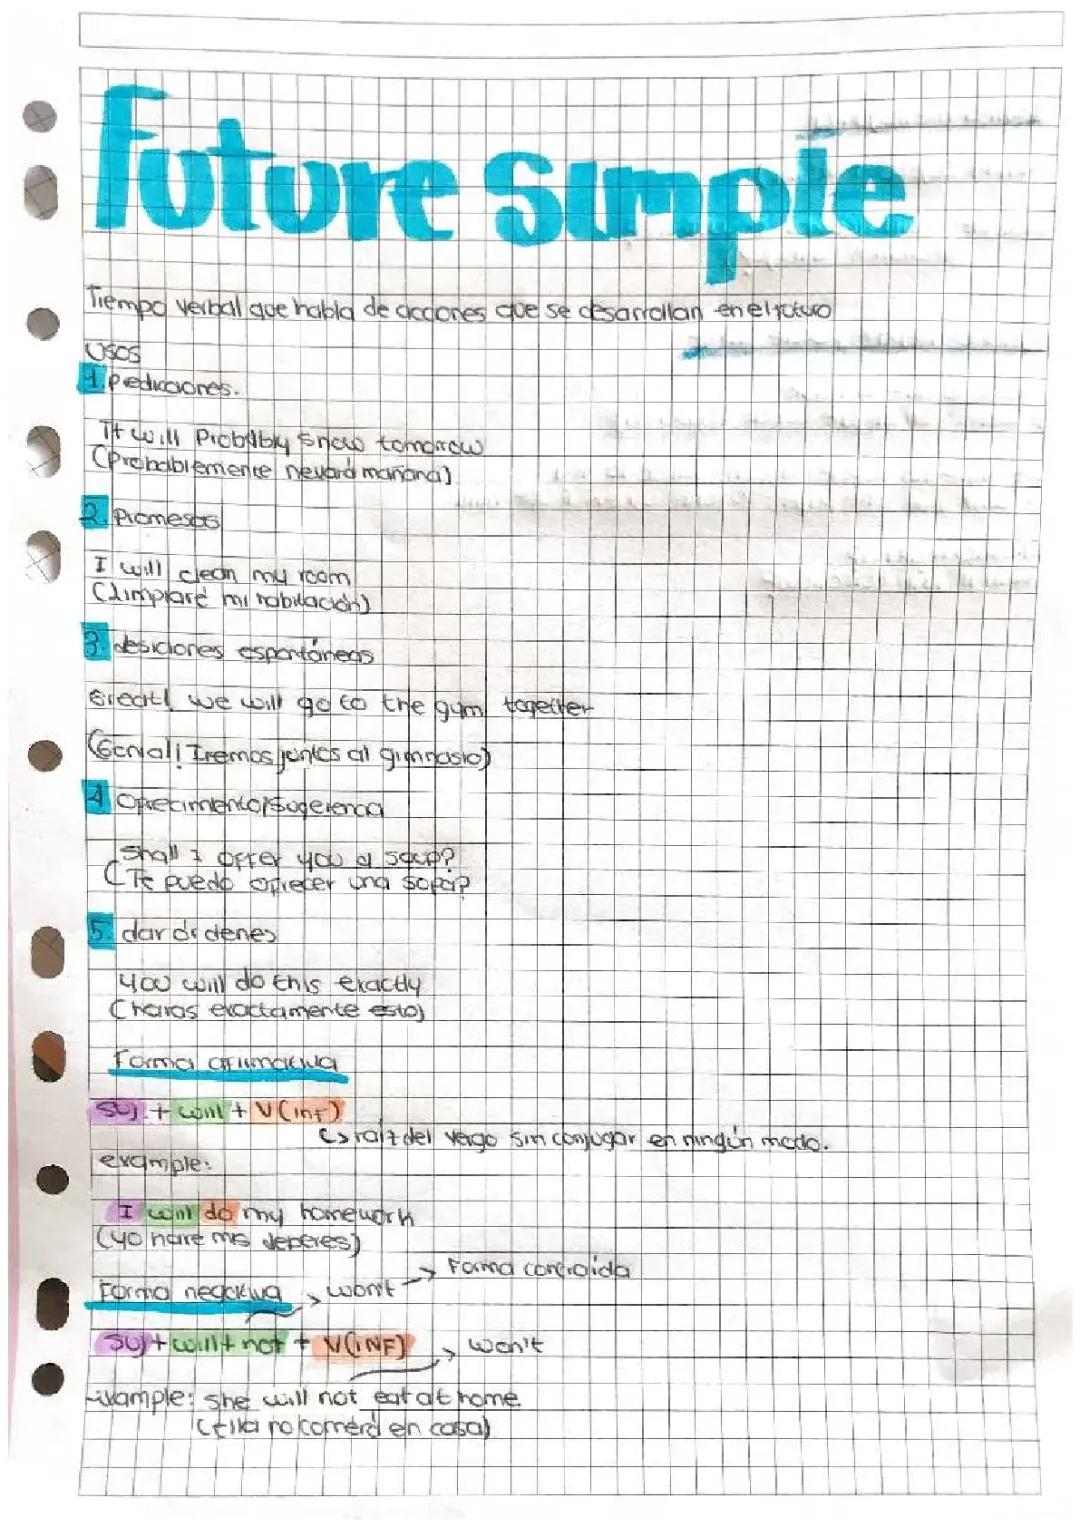 Future Simple
Tiempo verbal que habla de acciones que se desarrollan en el futuro
Usos
1. Pedicciones.
It will Probably snow tomorrow
(Probablemente nevará mañana)
2. Promesas
I will clean my room
(Limpiaré mi habitación)
3. desiciones espontáneas
Great! we will go to the gym together
(Genial! Iremos juntos al gimnasio)
4 Ofrecimiento/Sugerencia
Shall I offer you a soup?
(Te puedo ofrecer una sopa?
5. dar órdenes
You will do this exactly
(haras exactamente esto)
Forma afirmativa
Suj + will + V(inf)
raíz del verbo sin conjugar en ningún modo.
example:
I will do my homework
(yo haré mis deberes)
Forma negativa → won't → Forma contraída
Suj + will + not + V(INF) → won't
example: She will not eat at home
(Ella no comerá en casa)